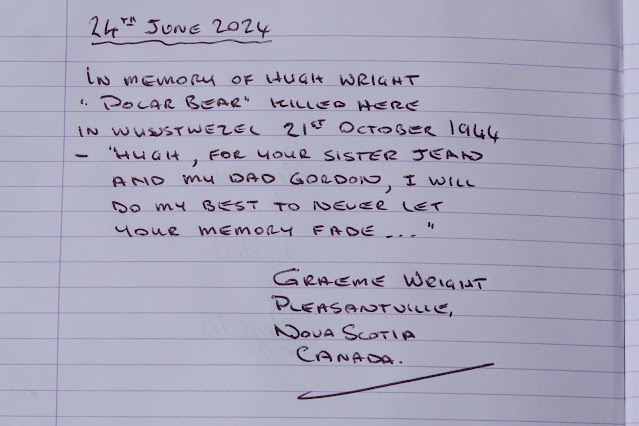 24TH JUNE 2024
IN MEMORY OF HUGH WRIGHT
"POLAR BEAR" KILLED HERE
IN WUUSTWEZEL 21ST OCTOBER 1944
- "HUGH, FOR YOUR SISTER JEAN
AND MY DAD GORDON, I WILL
DO MY BEST TO NEVER LET
YOUR MEMORY FADE ..."
GRAEME WRIGHT
PLEASANTVILLE,
NOVA SCOTIA
CANADA.